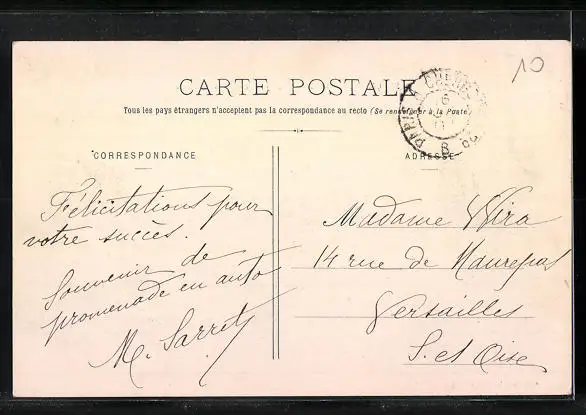 10
CARTE POSTALE
Tous les pays étrangers n'acceptent pas la correspondance au recto (Se renseigner à la Poste)
CORRESPONDANCE
ADRESSE
Félicitations pour
votre succès.
Souvenir de
promenade en auto
M. Sarrety
Madame Wira
14 rue de Maurepas
Versailles
S. et Oise